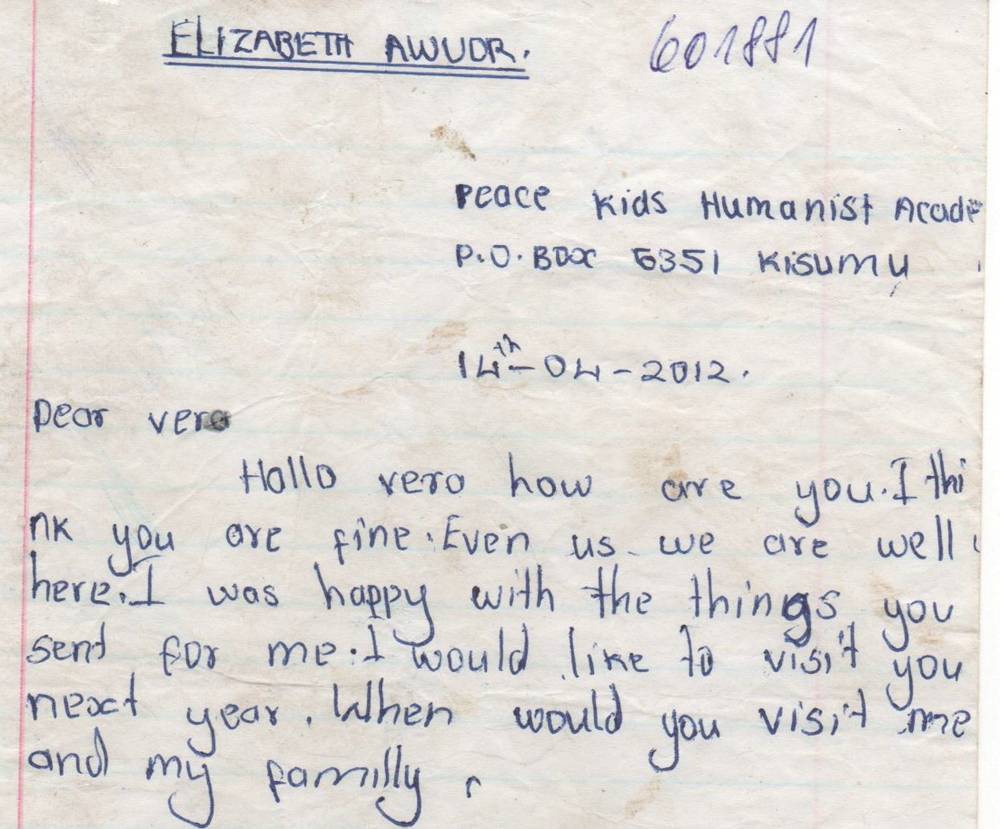 ELIZABETH AWUOR.
601881
Peace Kids Humanist Acade
P.O. BOX 6351 KISUMU
14th-04-2012.
Dear vero
Hallo vero how are you. I thi
nk you are fine. Even us we are well
here. I was happy with the things you
sent for me. I would like to visit you
next year. When would you visit me
and my familly